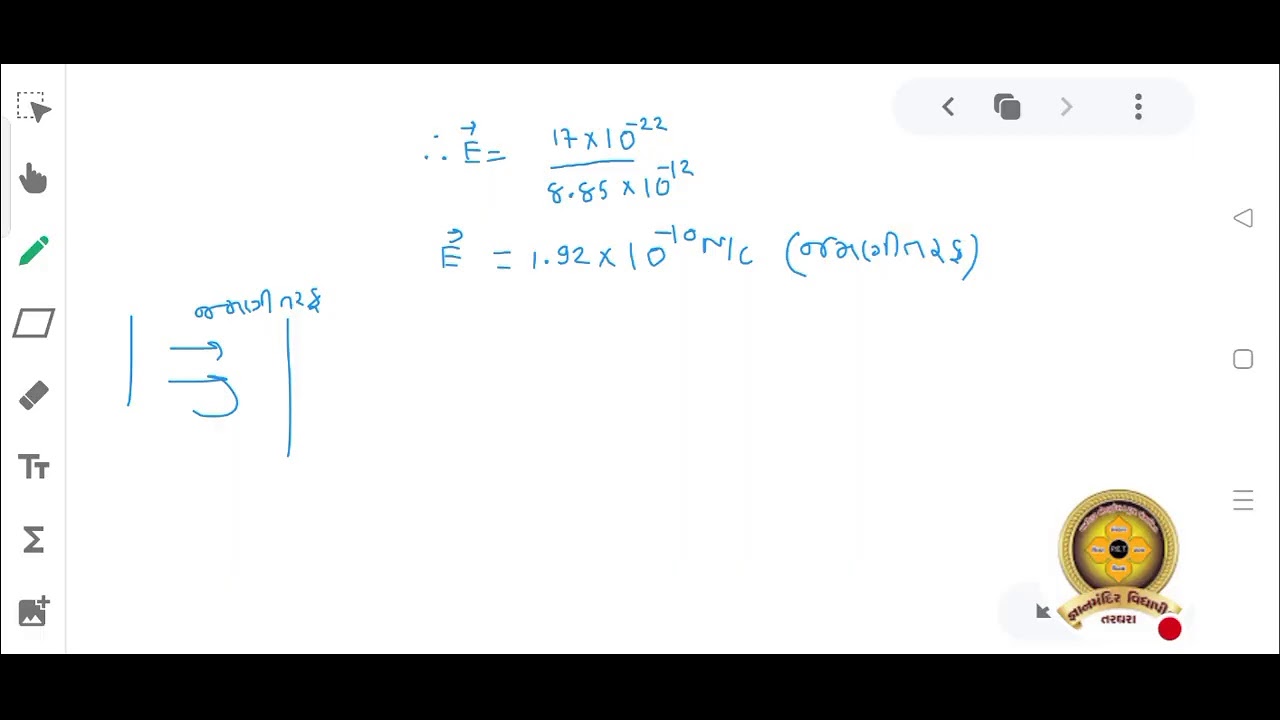 ∴ E⃗ = 17 × 10⁻²² / 8.85 × 10⁻¹²
E⃗ = 1.92 × 10⁻¹⁰ N/C (જમણીતરફ)
જમણીતરફ
Tт
Σ
જ્ઞાનમંદિર વિદ્યાપી
તરઘરા